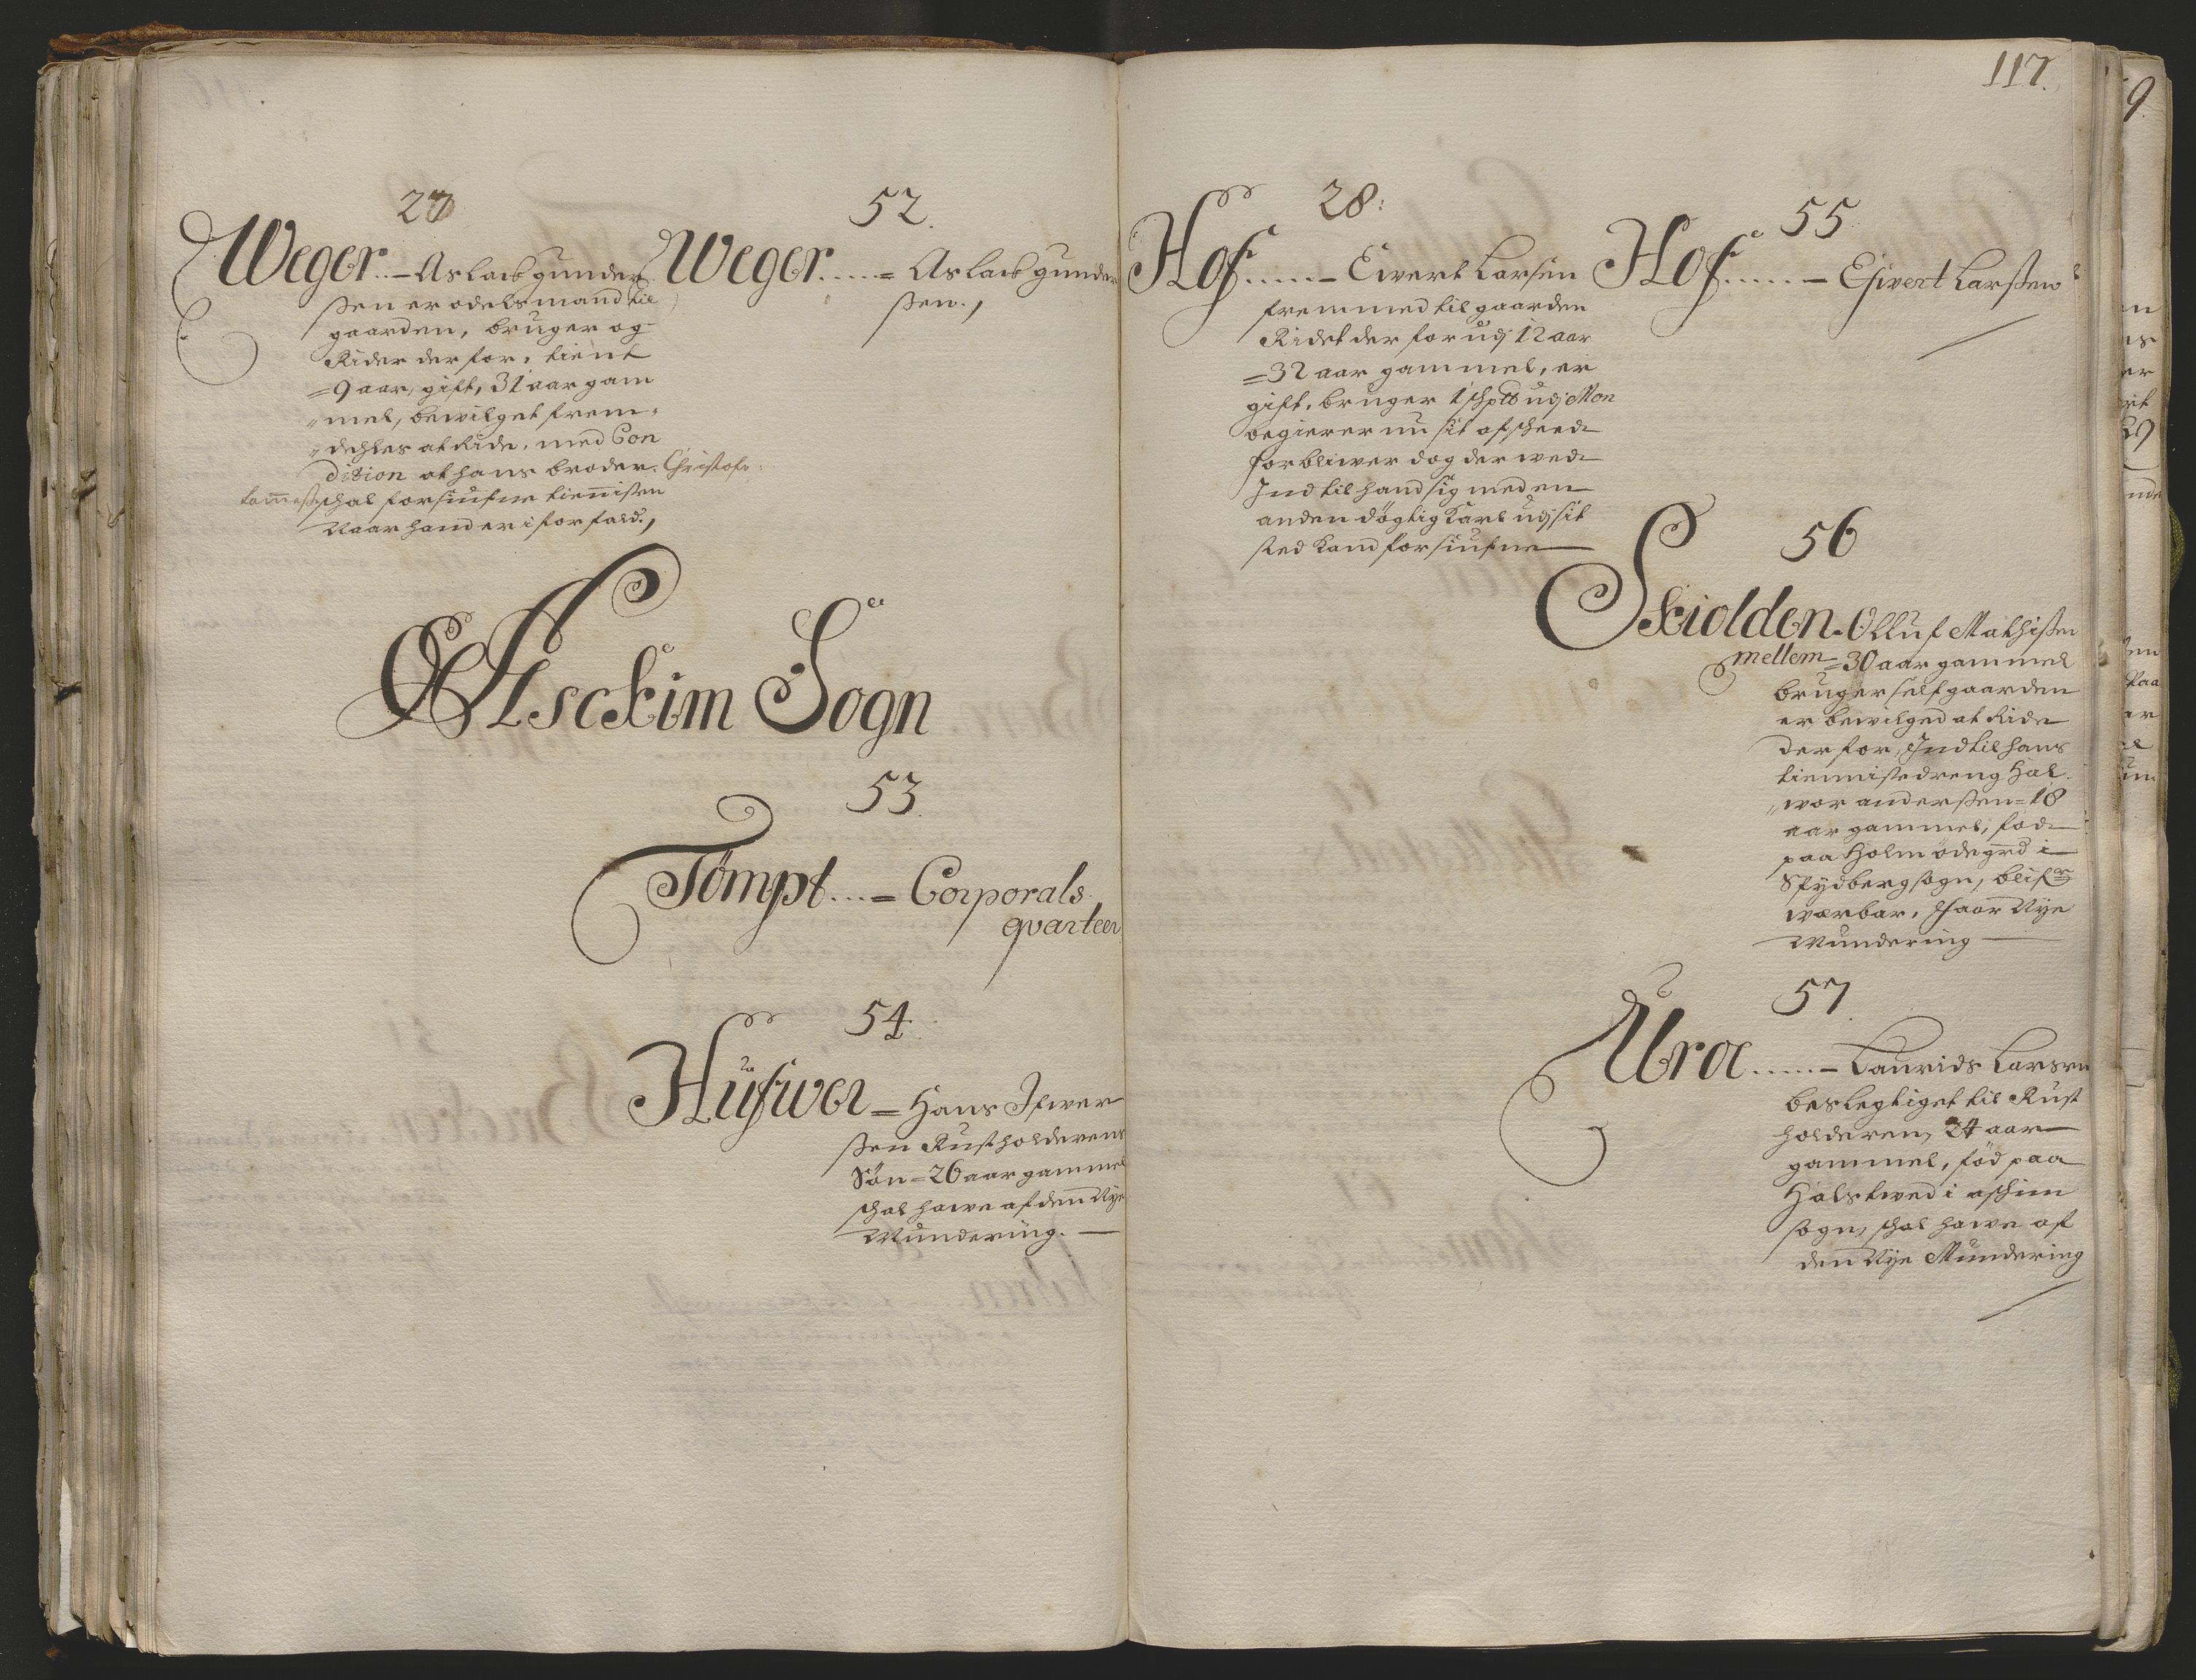 27
Weger..– Aslack gunder
ßen er odelsmand til
gaarden, bruger og
Rider derfor, tient
=9 aar, gift, 31 aar gam
„mel, bewilget frem„
„dehles at Ride, med Con
dition at hans broder Christofr
schal forsiufne tienisten
Naar hand er i forfald.,
52.
Weger....= Aslack gunder
ßen.,
Asckim Sogn
53
Tømpt...= Corporals
qvarteer
54
Hüfwer = Hans Ifwer
ßen Rustholderens
Søn = 26 aar gammel
schal hawe af den Nye
Mundering. —
117.
28:
Hof.....– Ewert Larsen
fremmed til gaarden
Ridet der for udj 12 aar
=32 aar gammel, er
gift, bruger 1 schptd udj Mon
begierer nu sit afscheed
forbliwer dog der wed
Ind til hand sig med en
anden døgtig Karl udj sit
sted kand forsiufne
55
Hof.....– Ejwert Larßen
56
Skiolden. Olluf Mathißen
mellem = 30 aar gammel
bruger self gaarden
er bewilged at Ride
derfor, Indtil hans
tienniste dreng Hal„
„wor anderßen = 18
aar gammel, fød
paa Holm ødegrd i
Spydberg sogn, blifr
værbar. Faar Nye
Mundering
57
Ura.....– Laurids Larsen
beslegtiget til Rust
holderen, 24 aar
gammel, fød paa
Halstwed i aschim
sogn, schal hawe af
den Nye Mundering
9.